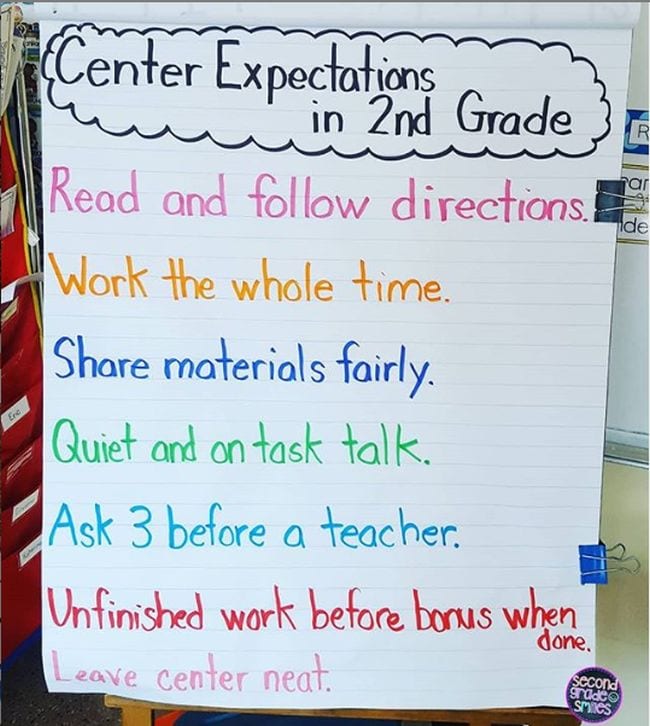 Center Expectations
in 2nd Grade
Read and follow directions.
Work the whole time.
Share materials fairly.
Quiet and on task talk.
Ask 3 before a teacher.
Unfinished work before bonus when
done.
Leave center neat.
second
grade
smiles
Eric
R
ar
ide